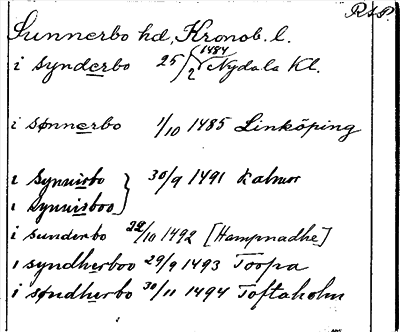 RSP.
Sunnerbo hd, Kronob. l.
i synderbo 25/2 1484 Nydala Kl.
i sønnerbo 1/10 1485 Linköping
i Synnirbo } 30/9 1491 Kalmar
i Synnisboo
i sunderbo 22/10 1492 [Hampnadhe]
i syndherboo 29/9 1493 Toopa
i søndherbo 30/11 1494 Toftaholm